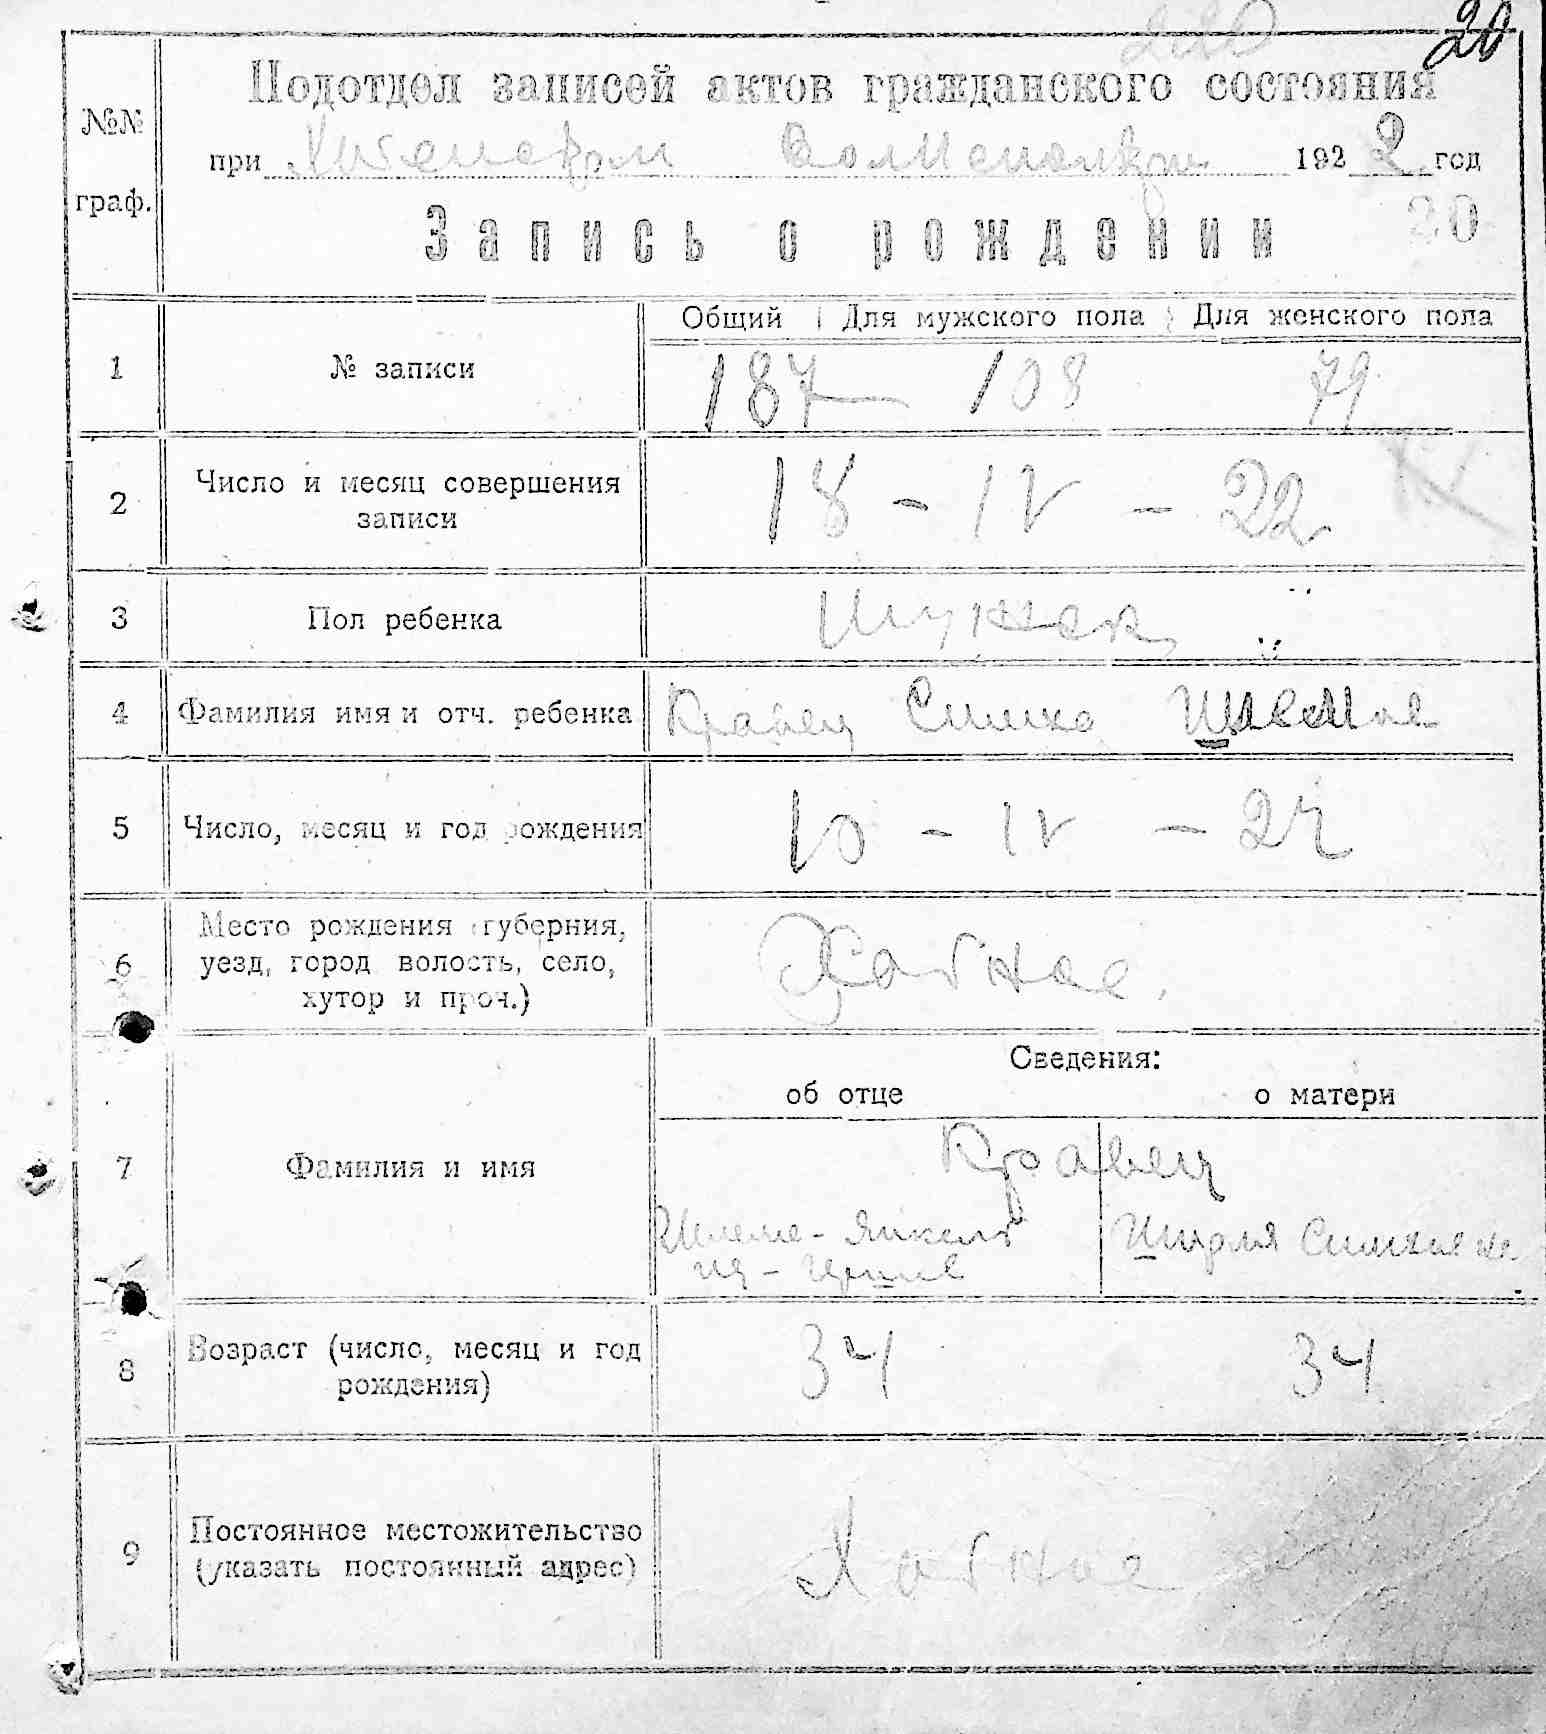 220
20
Подотдел записей актов гражданского состояния
№№
граф.
при 1922 год
20
Запись о рождении
Общий Для мужского пола Для женского пола
1 № записи 187 — 108 79
2 Число и месяц совершения
записи
18 - IV - 22
3 Пол ребенка Мужск
4 Фамилия имя и отч. ребенка Кравец Симха
5 Число, месяц и год рождения 10 - IV - 22
6 Место рождения (губерния,
уезд, город волость, село,
хутор и проч.)
Хабное.
Сведения:
об отце о матери
7 Фамилия и имя
Кравец
Шлема-Янкель
8 Возраст (число, месяц и год
рождения)
34 34
9 Постоянное местожительство
(указать постоянный адрес)
Хабное